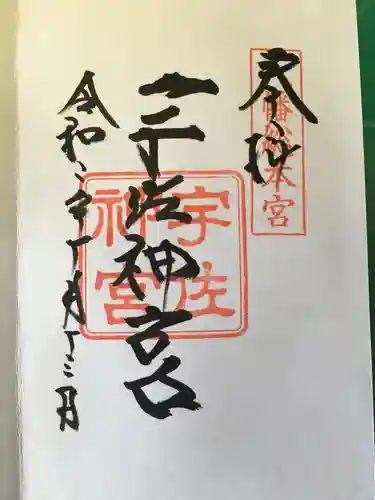 奉拝
八幡総本宮
宇佐神宮
宇佐神宮
令和二年十月十三日